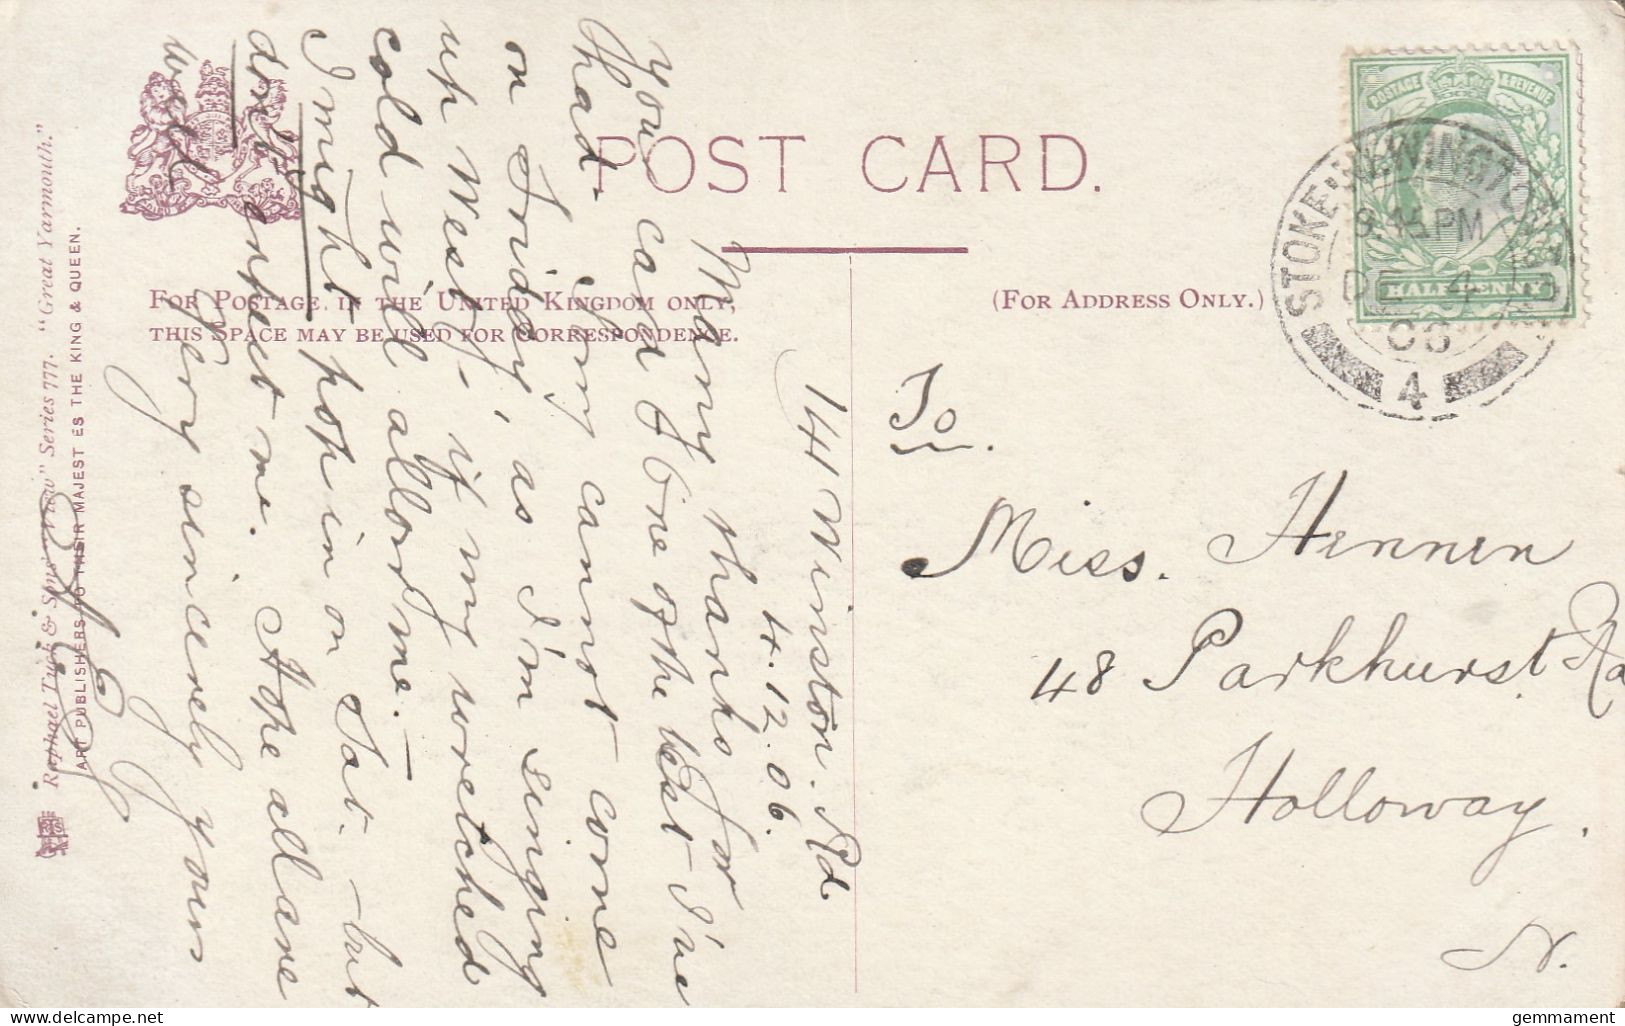 141 Winston. Rd.
4.12.06.
Many thanks for
your card & one of the best I've
had - Sorry cannot come
on Friday, as I'm singing
up West, - if my wretched
cold will allow me. -
I might pop in on Sat. - but
don't expect me. Hope all are
well.
Very sincerely yours
POST CARD.
FOR POSTAGE IN THE UNITED KINGDOM ONLY,
THIS SPACE MAY BE USED FOR CORRESPONDENCE.
(FOR ADDRESS ONLY.)
Raphael Tuck & Sons' "View" Series 777. "Great Yarmouth."
ART PUBLISHERS TO THEIR MAJESTIES THE KING & QUEEN.
POSTAGE & REVENUE
HALFPENNY
STOKE NEWINGTON
9.45 PM
DE 4
06
4
To.
Miss. Hennen
48 Parkhurst Rd
Holloway.
N.
delcampe.net
gemmament